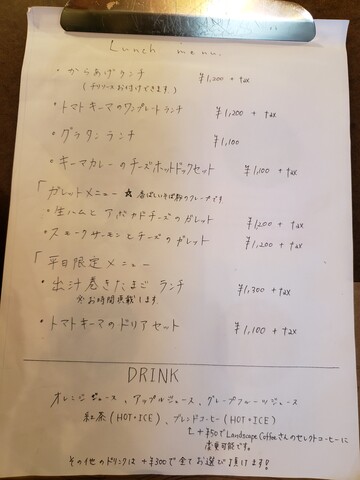 Lunch menu.
・からあげランチ ¥1,200 + tax
(チリソースお付けできます。)
・トマトキーマのワンプレートランチ ¥1,200 + tax
・グラタンランチ ¥1,100
・キーマカレーのチーズホットドックセット ¥1,100 + tax
「ガレットメニュー ☆ 香ばしいそば粉のクレープです
・生ハムとアボカドチーズのガレット ¥1,200 + tax
・スモークサーモンとチーズのガレット ¥1,200 + tax
「平日限定メニュー
・出汁巻きたまごランチ ¥1,300 + tax
※お時間頂戴します。
・トマトキーマのドリアセット ¥1,100 + tax
DRINK
オレンジジュース、アップルジュース、グレープフルーツジュース
紅茶(HOT・ICE)、ブレンドコーヒー(HOT・ICE)
+¥50でLandscape Coffeeさんのセレクトコーヒーに
変更可能です。
その他のドリンクは +¥300で全てお選び頂けます!